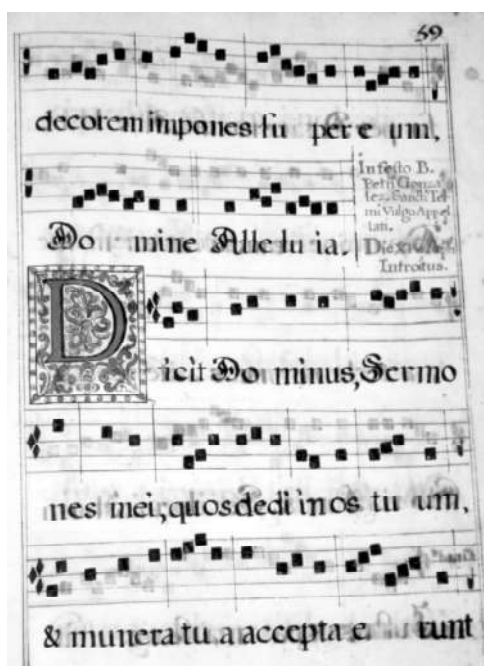 59
decorem impones su per e um,
Do mine Alleluia.
In festo B.
Petri Gonza
lez. Sancti Tel
mi Vulgo Appel
lati.
Introitus.
Dicit Do minus, Sermo
nes mei, quos dedi in os tu um,
& munera tu a accepta e runt